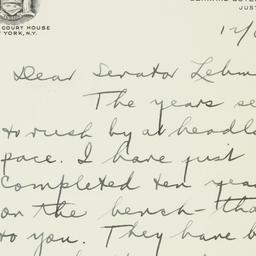 COURT HOUSE
YORK, N.Y.
JUST
12/
Dear Senator Lehm
The years se
to rush by at headlo
pace. I have just
completed ten yea
on the bench – tha
to you. They have b